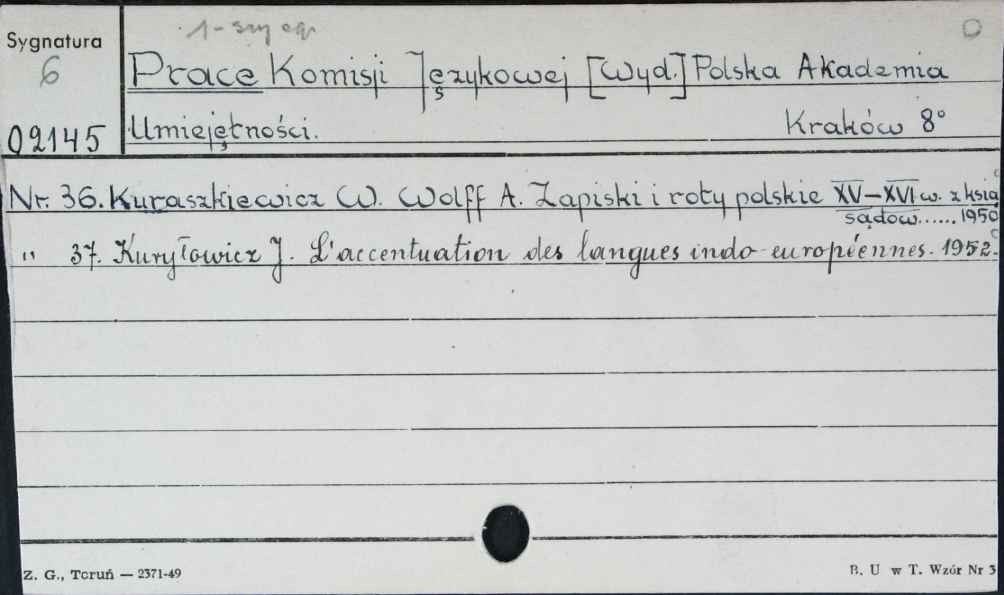 1-szy eg.
Sygnatura
6
02145
Prace Komisji Językowej [Wyd.] Polska Akademia
Umiejętności. Kraków 8°
Nr. 36. Kuraszkiewicz W. Wolff A. Zapiski i roty polskie XV-XVI w. z ksią
sądow...... 1950
" 37. Kuryłowicz J. L'accentuation des langues indo-européennes. 1952.
Z. G., Toruń — 2371-49
B. U w T. Wzór Nr 3